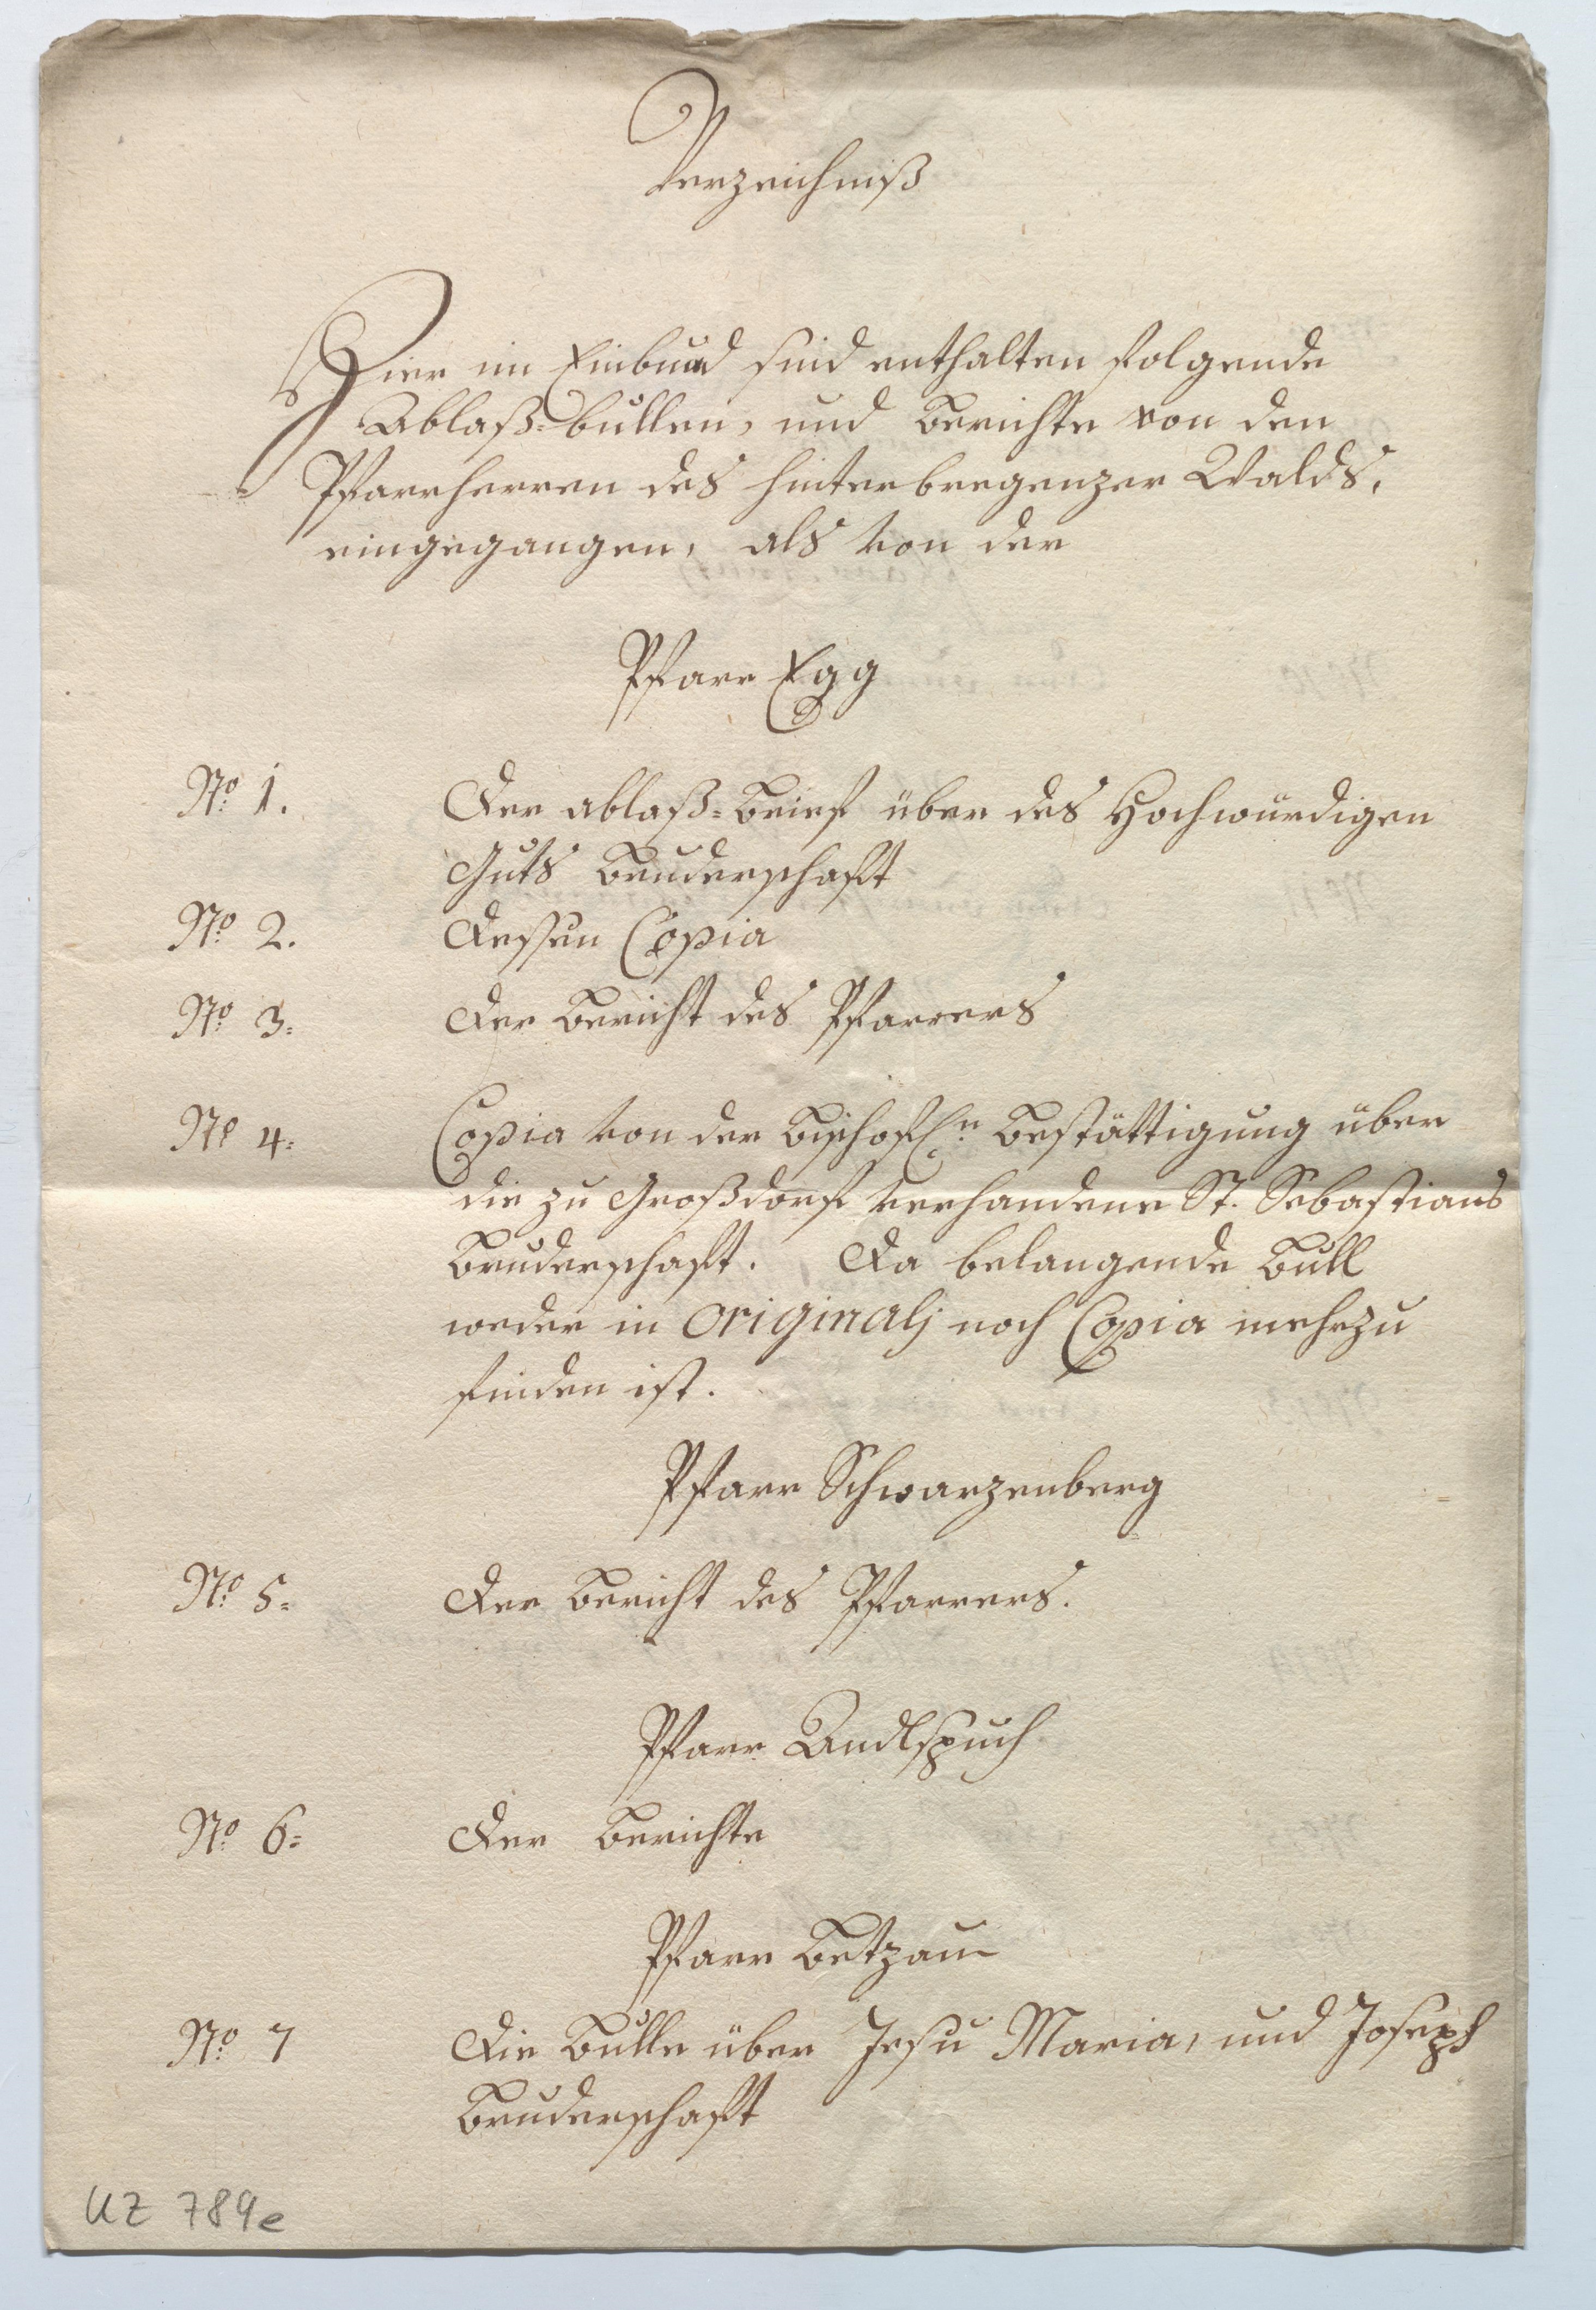 Verzeichniß
Hier im Einbund sind enthalten folgende
Ablaß=bullen, und Berichte von den
Pfarrherren des hinterbregenzer Walds,
eingegangen, als von der
Pfarr Egg
No 1. Der ablaß=Brief über des Hochwürdigen
Guts Bruderschaft
No 2. Dessen Copia
No 3. Der Bericht des Pfarrers
No 4. Copia von der Bischofl:n Bestättigung über
die zu Großdorf verhandene St. Sebastians
Bruderschaft. Da belangende Bull
weder in originalj noch Copia mehr zu
finden ist.
Pfarr Schwarzenberg
No 5. Der Bericht des Pfarrers.
Pfarr Andlspuch
No 6. Der Berichte
Pfarr Betzau
No 7 Die Bulle über Jesu Maria, und Joseph
Bruderschaft
UZ 789e